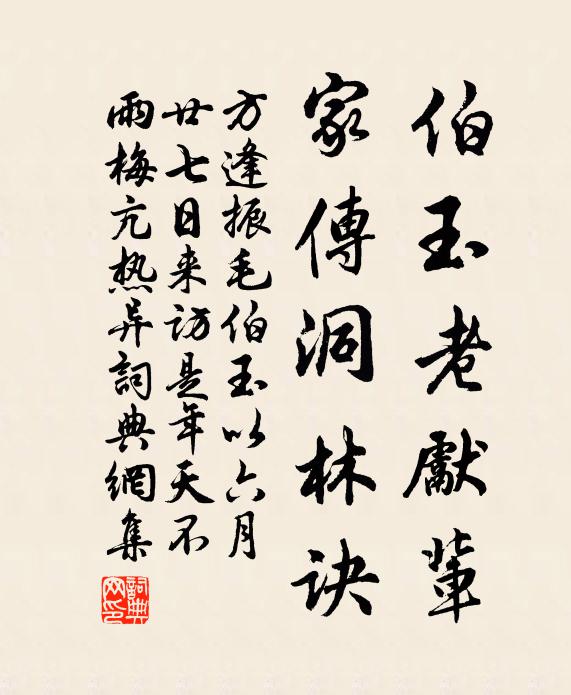 伯玉老獻輩
家傳洞林訣
方逢振毛伯玉以六月
廿七日来訪是年天不
雨梅亢热异詞典網集
詞典網印